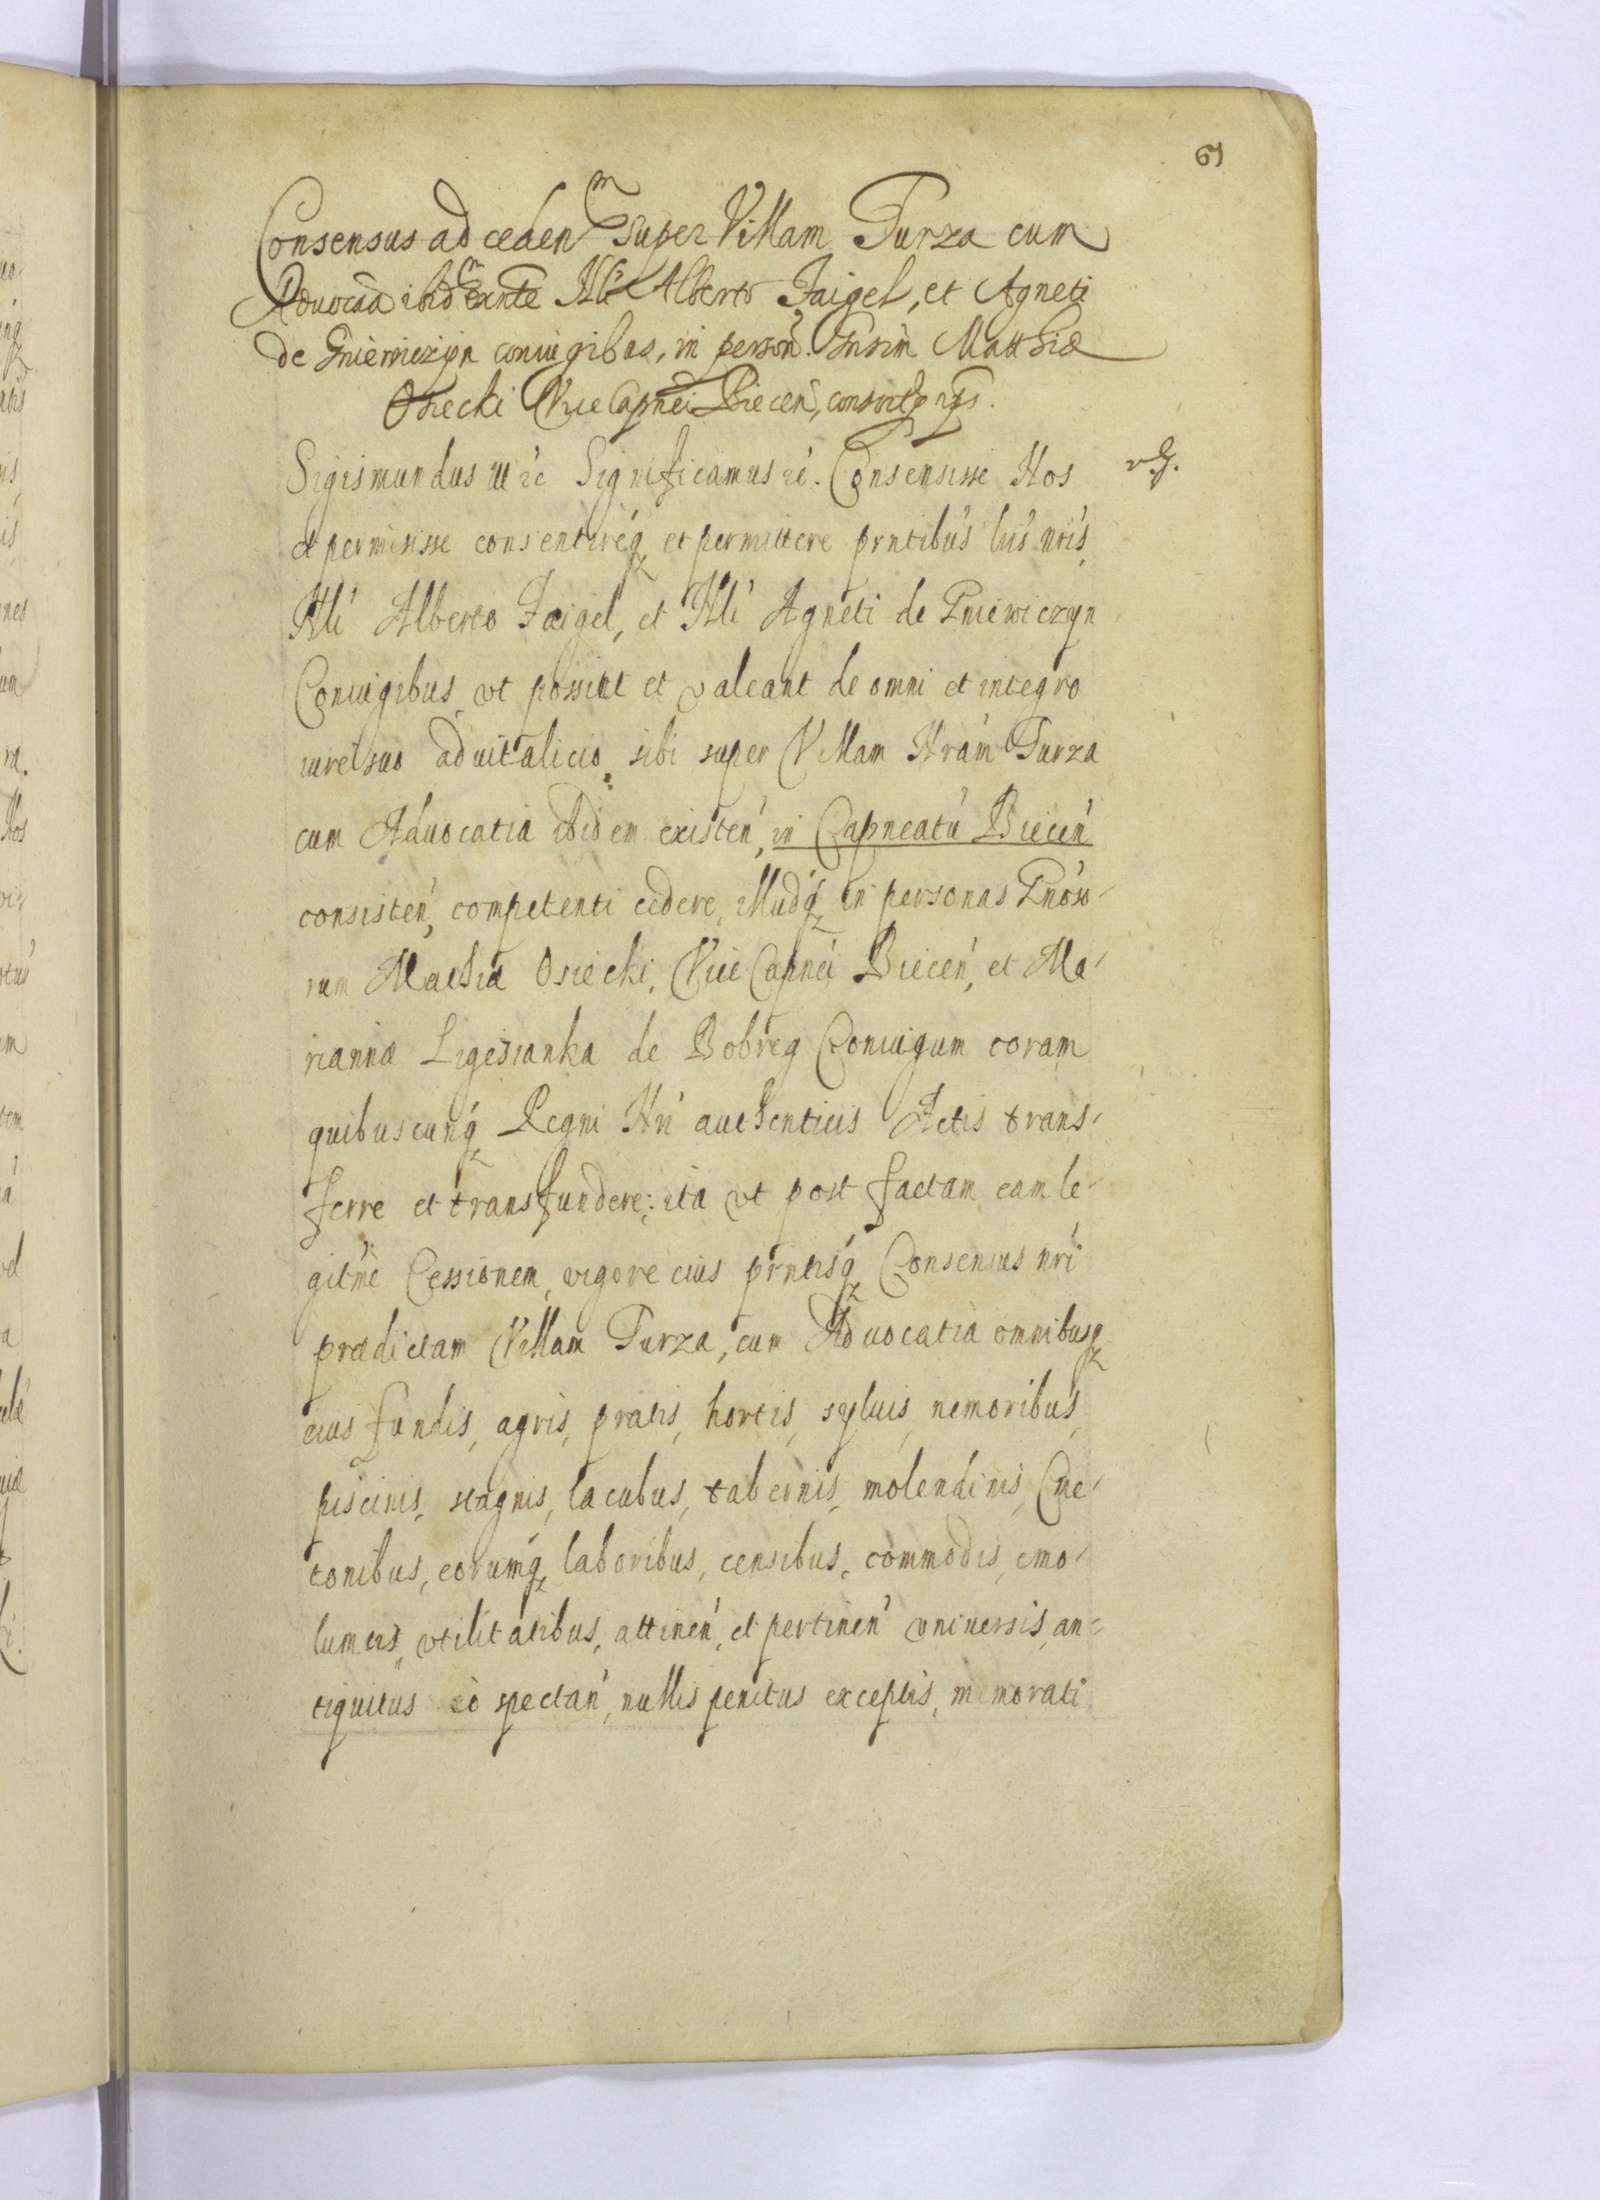 61
Consensus ad ceden super Villam Turza cum
Advocatia ibid exnte Nli Alberto Jaigel, et Agneti
de Pniewiczyn coniugibus, in person Mathiæ
Osiecki ViceCapnei Biecen,
Sigismundus III ʒc Significamus ʒc. Consensisse Nos
et permisisse consentireq et permittere prntibus lris nris
Nli Alberto Jaigel, et Nli Agneti de Pniewiczyn
Coniugibus, vt possint et valeant de omni et integro
iure suo aduitalicio sibi super Villam Nram Turza
cum Aduocatia ibidem existen, in Capneatu Biecen
consisten, competenti cedere, illudq in personas Gnoso-
rum Mathiæ Osiecki, ViceCapnei Biecen, et Ma-
riannæ Ligezianka de Bobreg Coniugum coram
quibuscunq Regni Nri authenticis Actis trans-
ferre et transfundere; ita vt post factam eam le-
gitme Cessionem, vigore eius prntisq Consensus nri
prædictam Villam Turza, cum Aduocatia omnibusq
eius fundis, agris, pratis, hortis, syluis, nemoribus,
piscinis, stagnis, lacubus, tabernis, molendinis, Cme-
tonibus, eorumq laboribus, censibus, commodis, emo-
lumtis, vtilitatibus, attinen, et pertinen vniuersis, an-
tiquitus eo spectan, nullis penitus exceptis, memorati